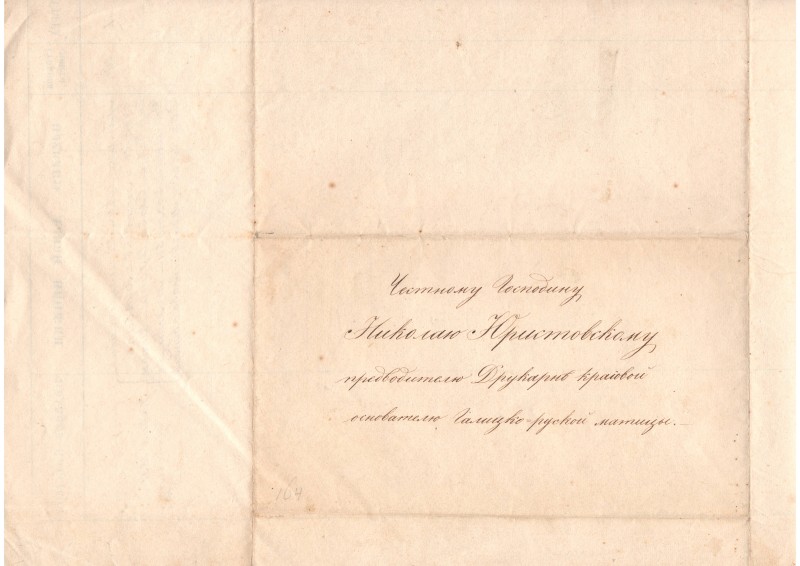 Честному Господину
Николаю Юристовскому
предводителю Друкарнѣ краёвой
основателю Галицко-руской матицы. —
164